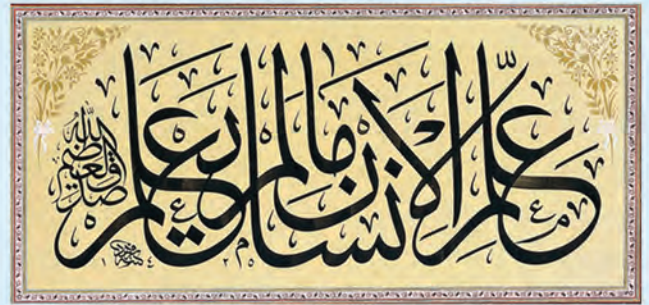 علم الإنسان ما لم يعلم
صدق الله العظيم